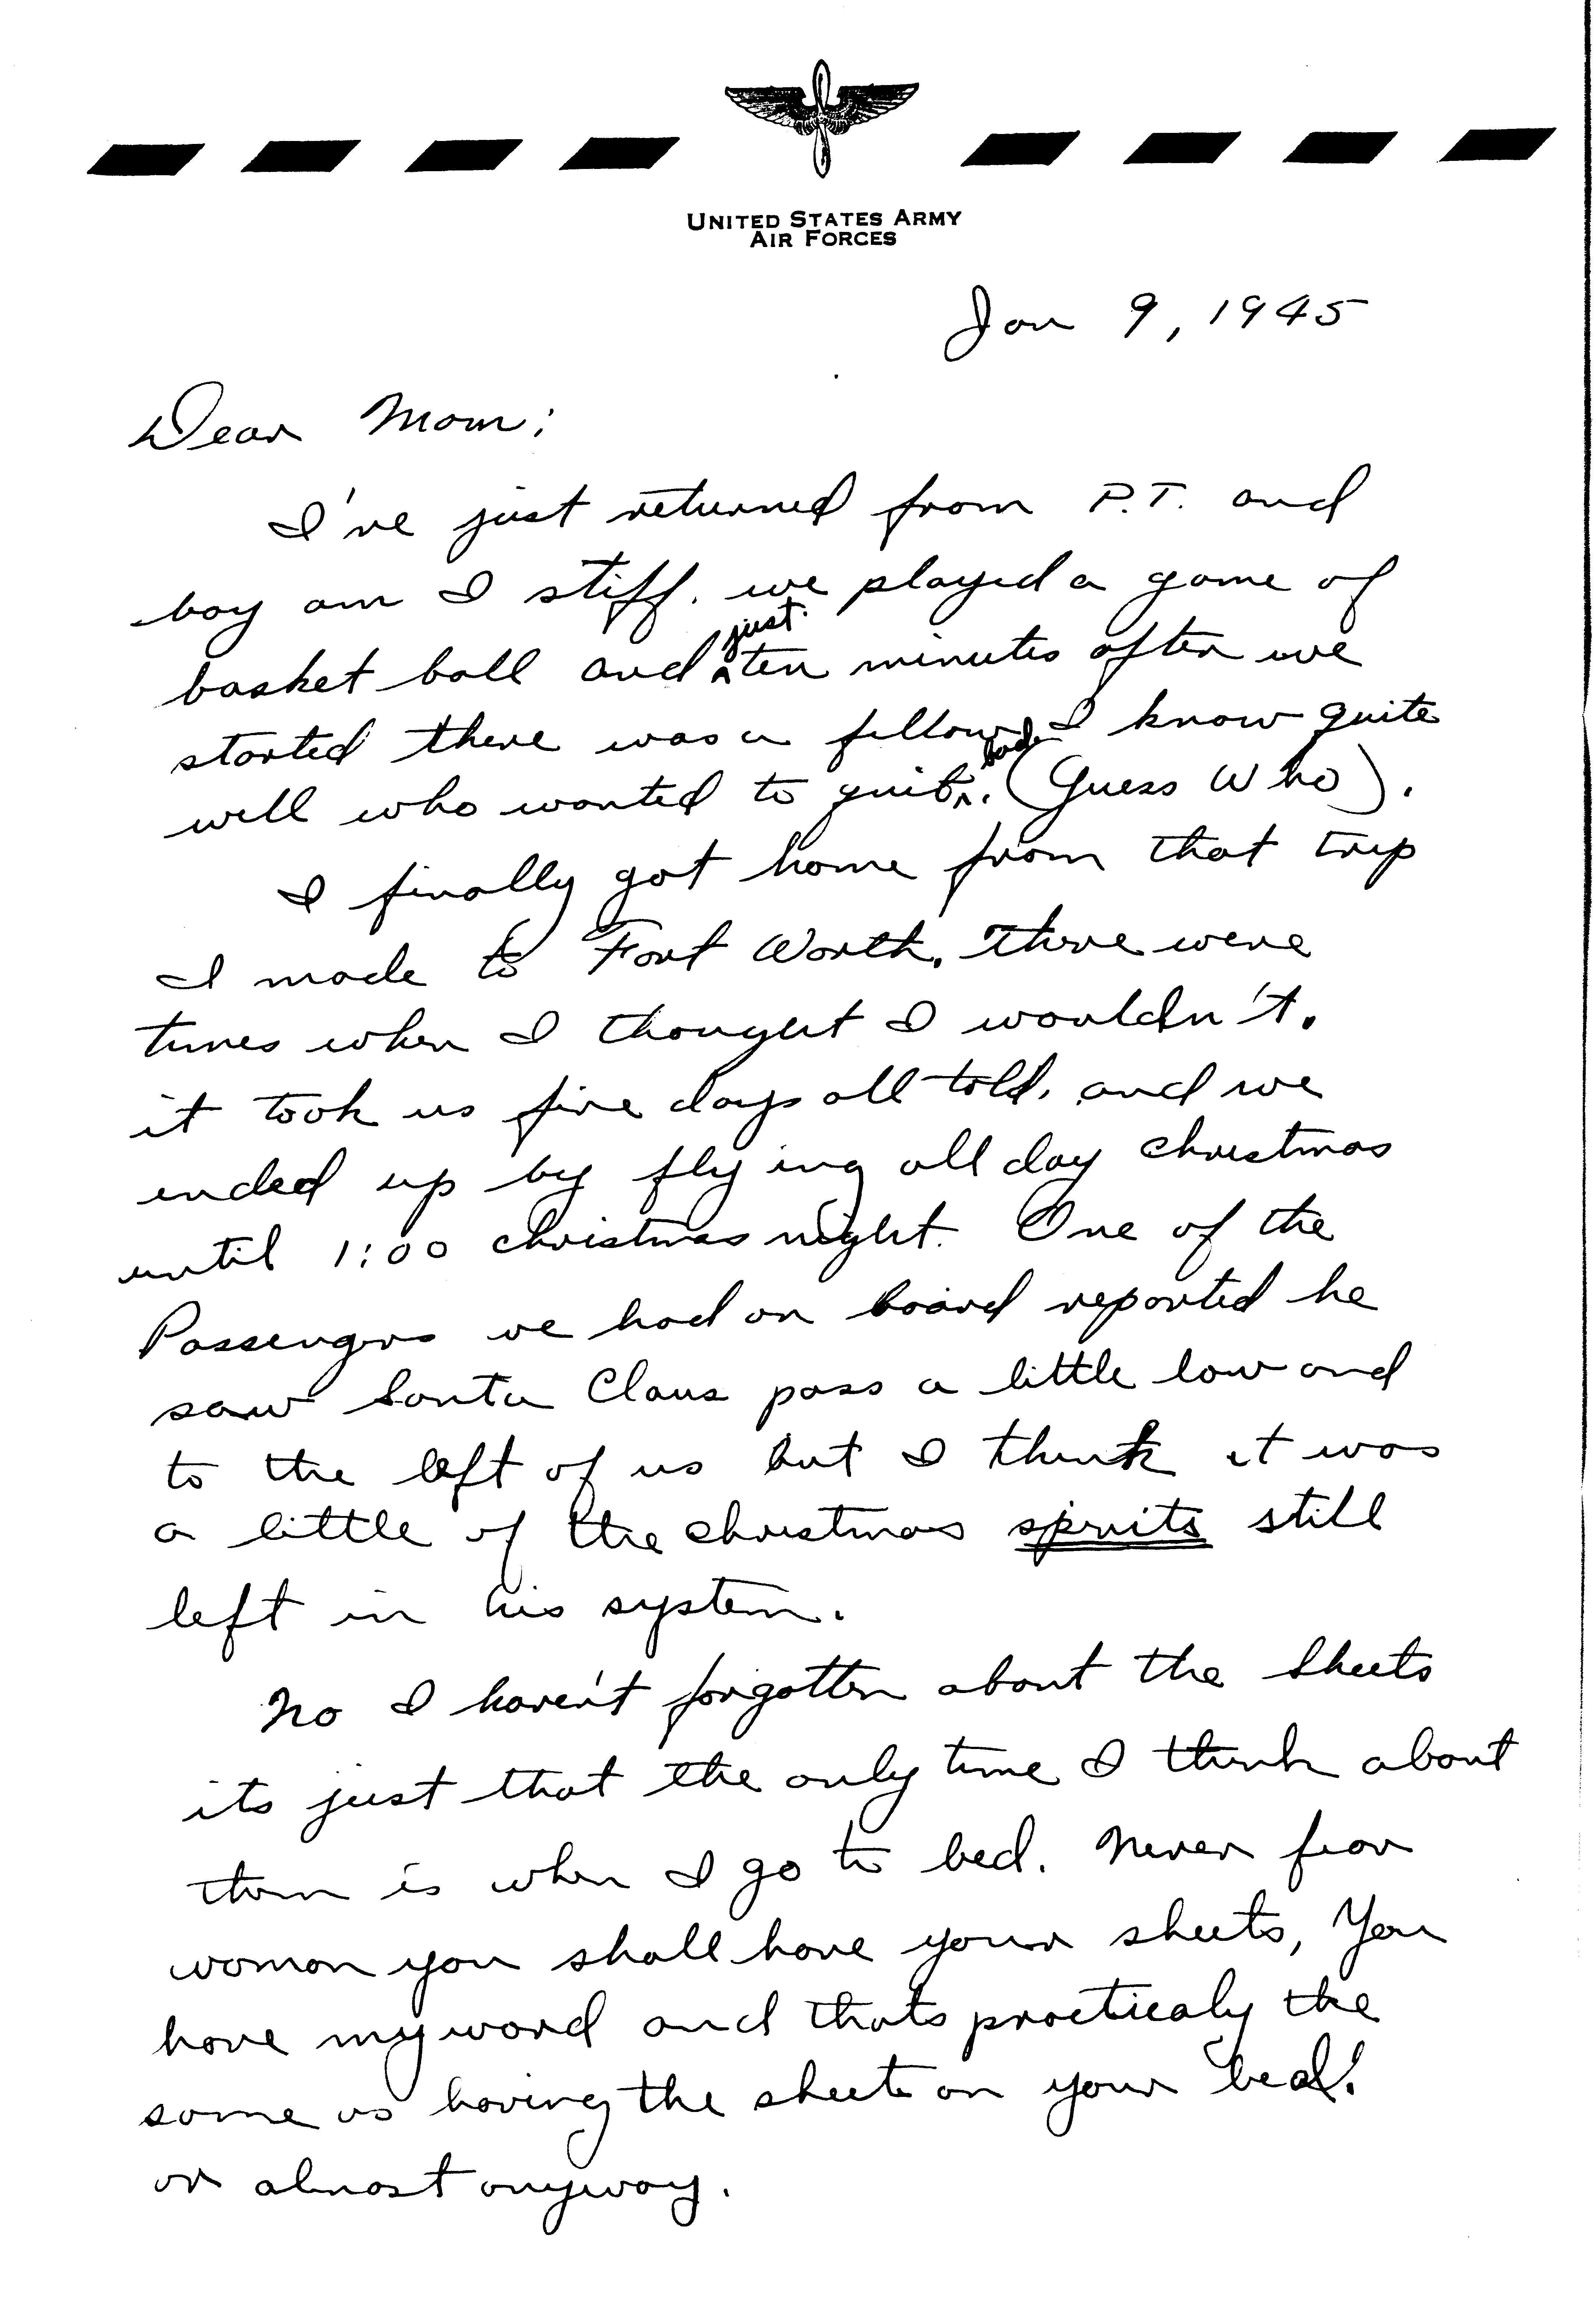 UNITED STATES ARMY
AIR FORCES
Jan 9, 1945
Dear Mom;
I've just returned from P.T. and
boy am I stiff. we played a game of
basket ball and just ten minutes after we
started there was a fellow I know quite
well who wanted to quit bad. (Guess Who).
I finally got home from that trip
I made to Fort Worth. There were
times when I thought I wouldn't.
it took us five days all told. and we
ended up by flying all day christmas
until 1:00 christmas night. One of the
Passengers we had on board reported he
saw Santa Claus pass a little low and
to the left of us but I think it was
a little of the christmas spirits still
left in his system.
No I haven't forgotten about the sheets
its just that the only time I think about
them is when I go to bed. Never fear
woman you shall have your sheets, You
have my word and thats practicaly the
same as having the sheets on your bed!
or almost anyway.